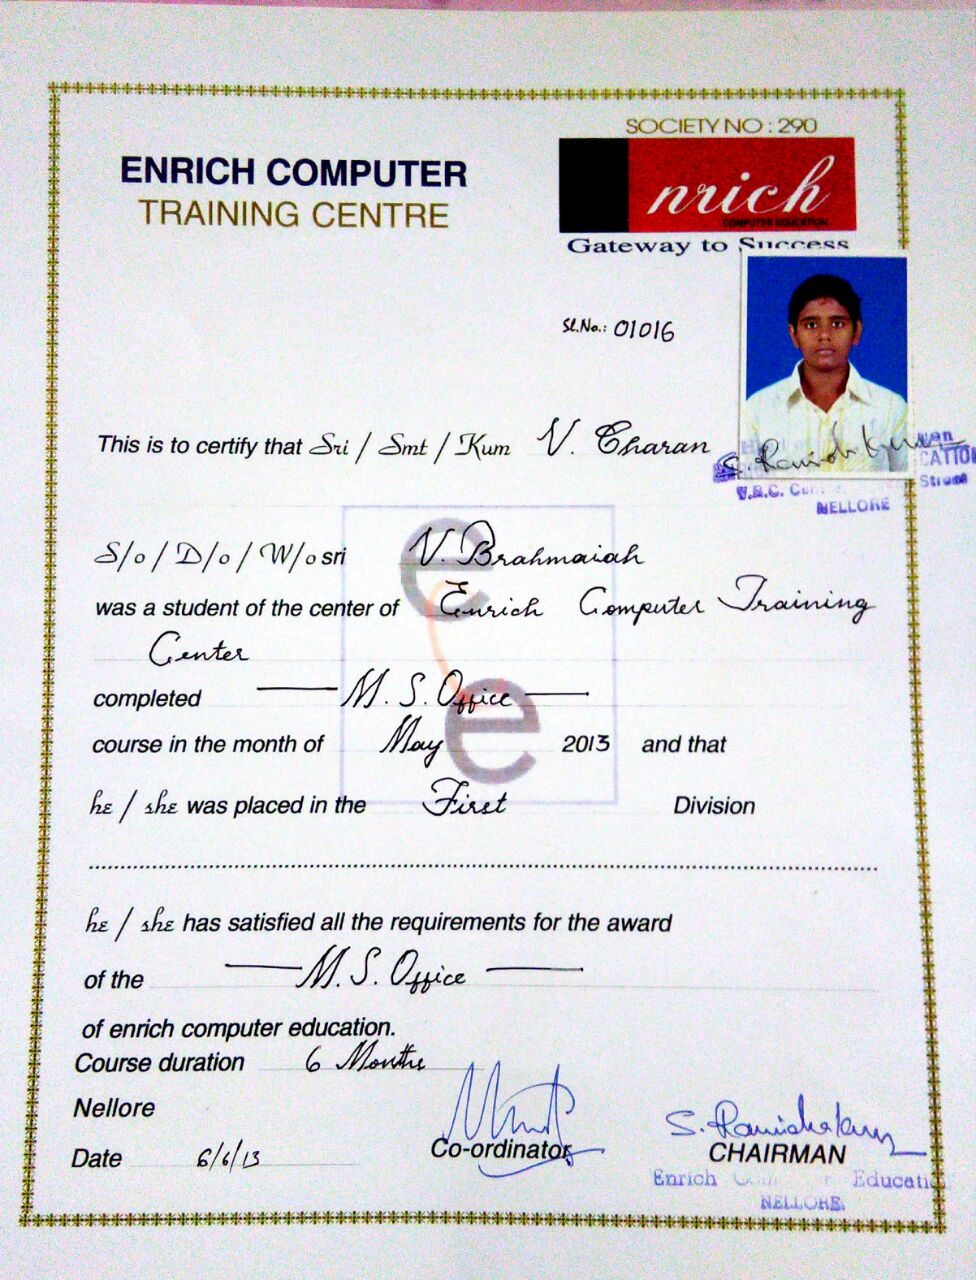 SOCIETY NO : 290
ENRICH COMPUTER
TRAINING CENTRE
nrich
COMPUTER EDUCATION
Gateway to Success
Sl.No.: 01016
This is to certify that Sri / Smt / Kum V. Charan
S. Ravishekar
CATION
V.R.C. Street
NELLORE
S/o / D/o / W/o sri V. Brahmaiah
was a student of the center of Enrich Computer Training
Center
completed M. S. Office
course in the month of May 2013 and that
he / she was placed in the First Division
he / she has satisfied all the requirements for the award
of the M. S. Office
of enrich computer education.
Course duration 6 Months
Nellore
Date 6/6/13
Co-ordinator
CHAIRMAN
Enrich Educati
NELLORE.